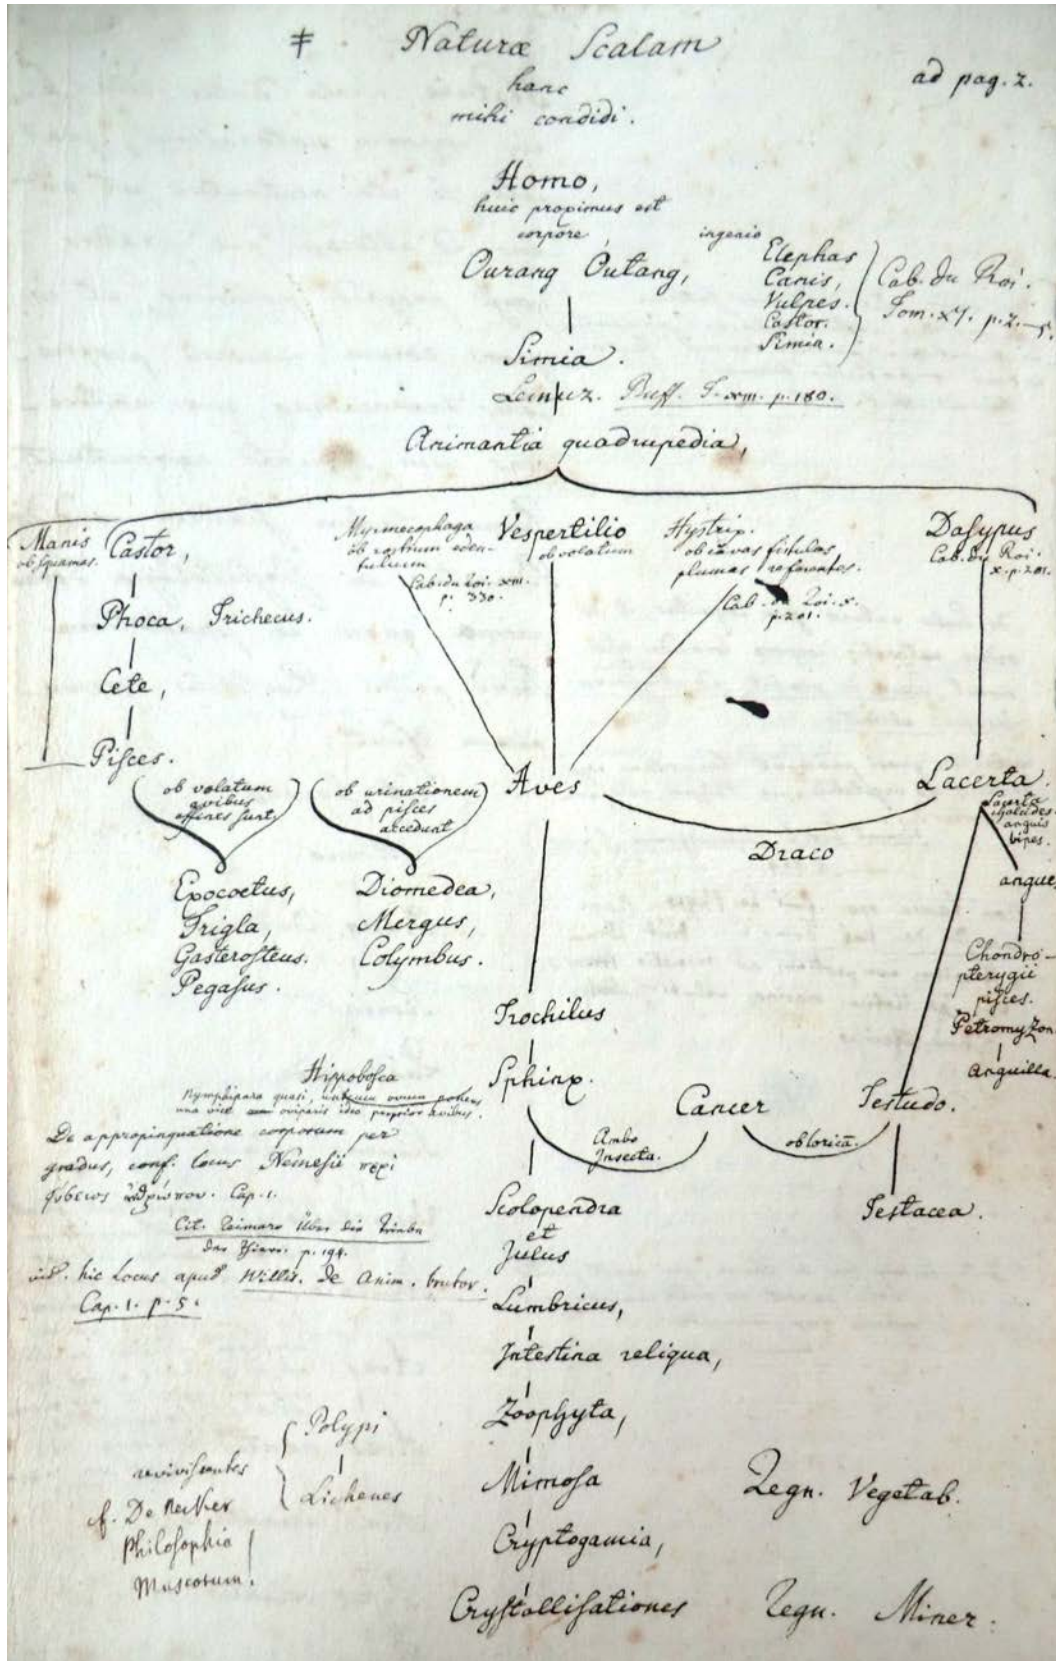 ⹋ Naturæ Scalam
ad pag. 2.
hanc
mihi condidi.
Homo,
huic proximus est
corpore, ingenio
Ourang Outang,
Elephas
Canis,
Vulpes.
Castor.
Simia.
Cab. du Roi.
Tom. XV. p. 2.
Simia.
Lemur. Buff. T. XIII. p. 180.
Animantia quadrupedia,
Manis
ob squamas.
Castor,
Myrmecophaga
ob rostrum eden-
tulum
Cab. du Roi. XIII.
p. 330.
Vespertilio
ob volatum
Hystrix.
ob cavas fistulas,
plumas referentes.
Cab. du Roi. X.
p. 201.
Daſypus
Cab. du Roi.
X. p. 201.
Phoca, Trichecus.
Cete,
Piſces.
ob volatum
avibus
affines ſunt,
ob urinationem
ad piſces
accedunt
Aves
Lacerta.
Lacerta
anguis
bipes.
Draco
angues
Exocoetus,
Trigla,
Gasteroſteus.
Pegaſus.
Diomedea,
Mergus,
Colymbus.
Chondro-
pterygii
piſces.
Petromyzon.
Anguilla.
Trochilus
Sphinx.
Cancer
Testudo.
Ambo
Insecta.
ob loricā.
Hippoboſca
Nymphipara quasi,
De appropinquatione corporum per
gradus, conf. locus Nemeſii περὶ
Cap. 1.
Cit. Reimarus Über die Triebe
der Thiere. p. 194.
vid. hic Locus apud Willis. De Anim. brutor.
Cap. 1. p. 5.
Scolopendra
et
Julus
Testacea.
Lumbricus,
Intestina reliqua,
Zoophyta,
Polypi
Lichenes
reviviſcentes
cf. De Necker
Philoſophia
Muscorum.
Mimoſa Regn. Vegetab.
Cryptogamia,
Cryſtalliſationes Regn. Miner.